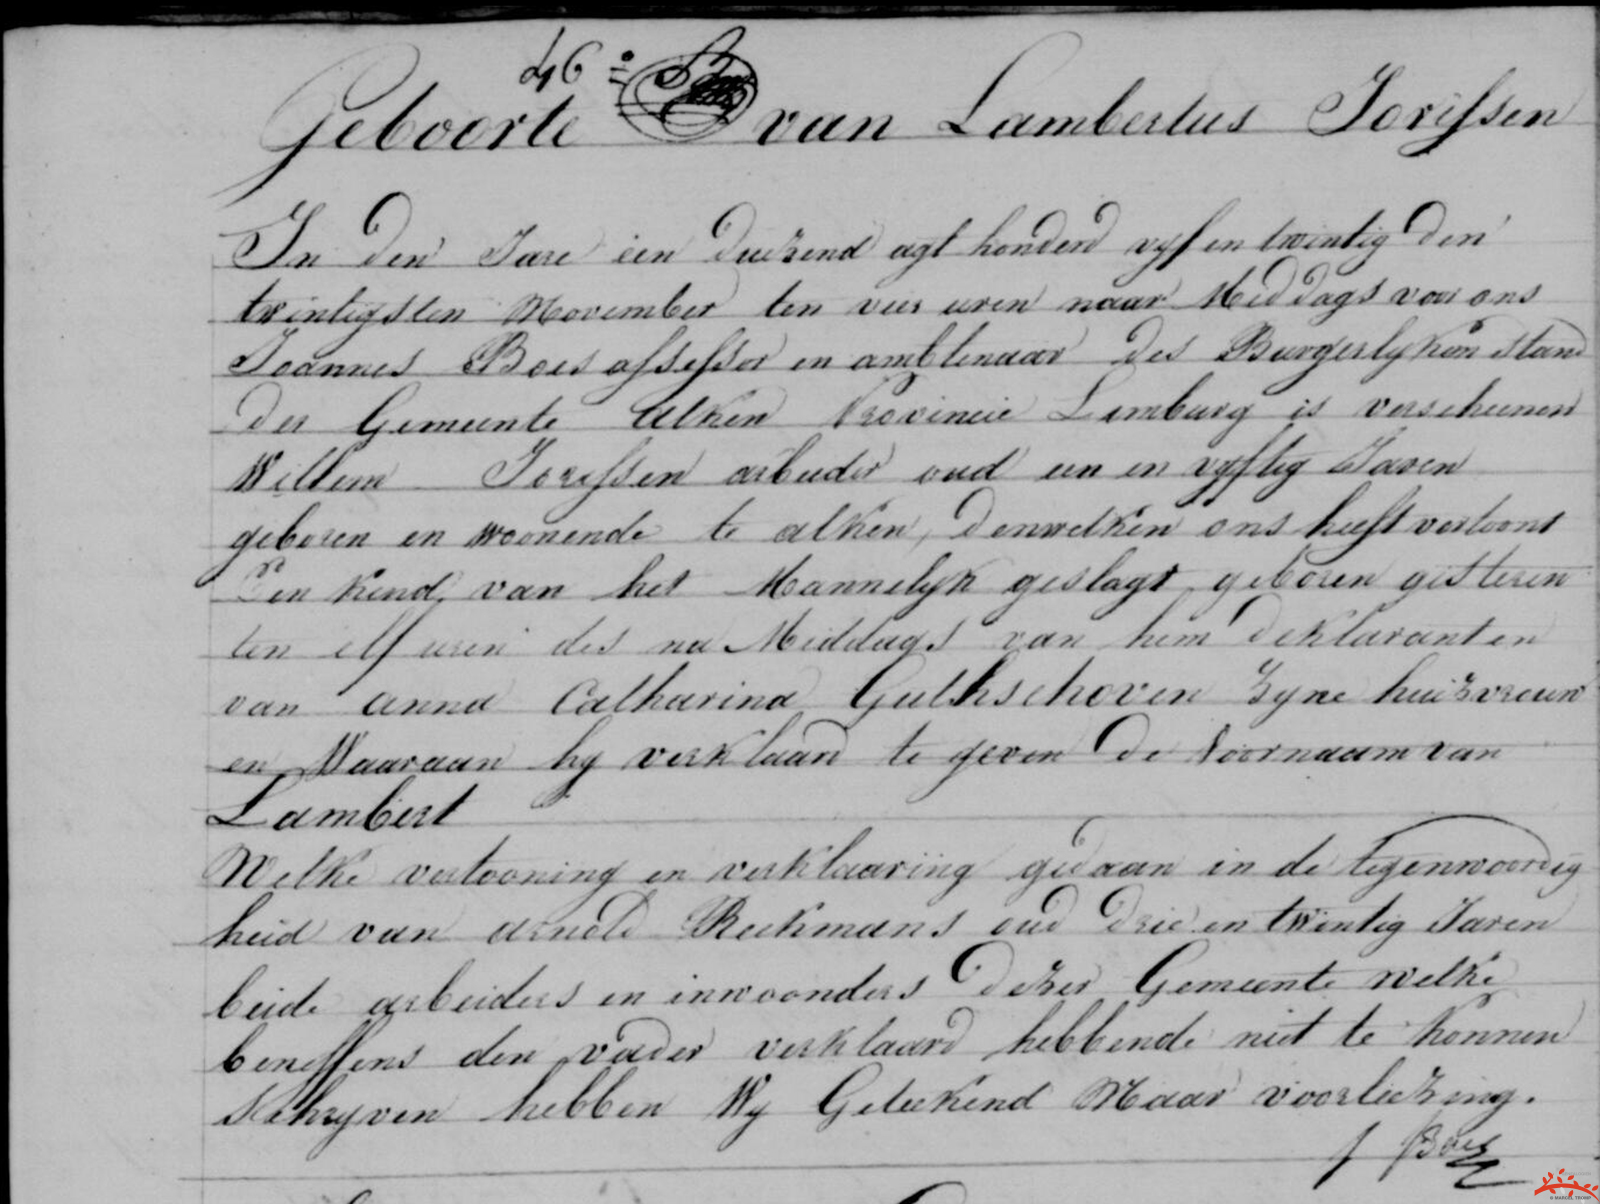 46°
Geboorte van Lambertus Jorissen
In den Jare een duizend agt honderd vyf en twintig den
twintigsten November ten vier uren naar Middags voor ons
Joannes Boes assessor en ambtenaar des Burgerlyken stand
der Gemeente Alken Provincie Limburg is verscheenen
Willem Jorissen arbeider oud een en vyftig Jaren
geboren en woonende te alken, denwelken ons heeft vertoont
Een Kend van het Mannelyk geslagt geboren gisteren
ten elf uren des na Middags van hem deklarant en
van anna Catharina Zyne huizvrouw
en Waaraan hy verklaard te geven de Voornaam van
Lambert
Welke vertooning en verklaaring gedaan in de tegenwoordig
heid van arnold Reekmans oud drie en twintig Jaren
beide arbeiders en inwoonders dezer Gemeente welke
beneffens den vader verklaard hebbende niet te konnen
schryven hebben Wy Geteekend Maar voorliezing.
J Boes
© MARCEL TROMP